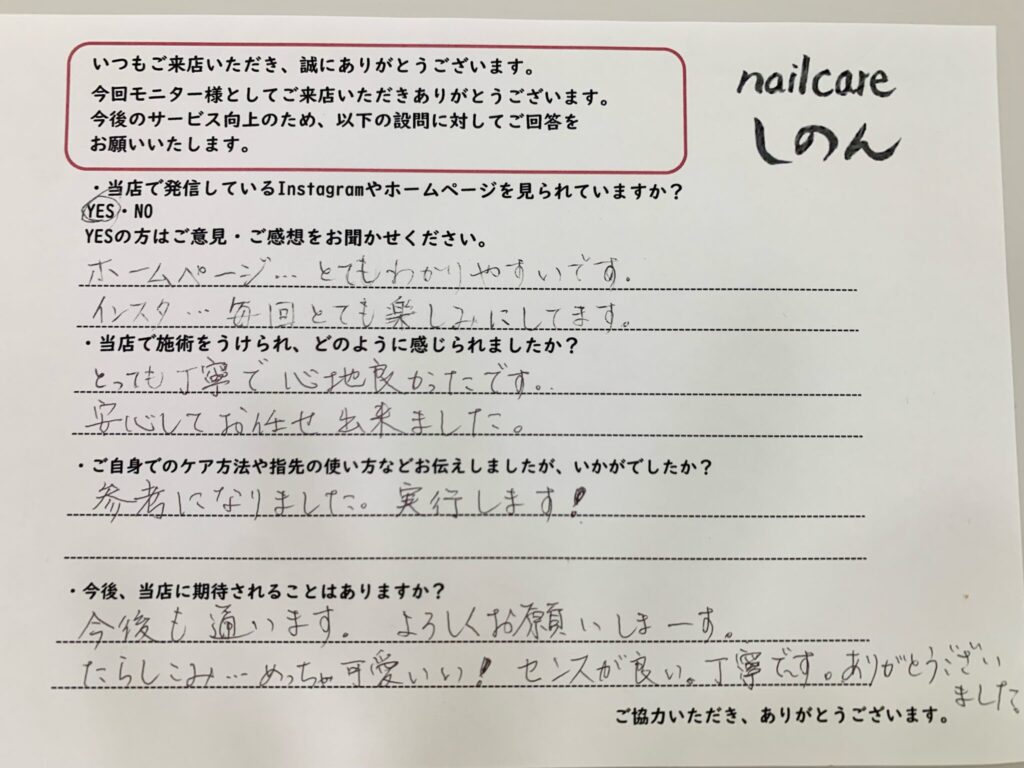 いつもご来店いただき、誠にありがとうございます。
今回モニター様としてご来店いただきありがとうございます。
今後のサービス向上のため、以下の設問に対してご回答を
お願いいたします。
nailcare
しのん
・当店で発信しているInstagramやホームページを見られていますか？
YES・NO
YESの方はご意見・ご感想をお聞かせください。
ホームページ… とてもわかりやすいです.
インスタ… 毎回とても楽しみにしてます。
・当店で施術をうけられ、どのように感じられましたか？
とっても丁寧で心地良かったです。.
安心してお任せ出来ました。
・ご自身でのケア方法や指先の使い方などお伝えしましたが、いかがでしたか？
参考になりました。実行します！
・今後、当店に期待されることはありますか？
今後も通います. よろしくお願いしまーす。
たらしこみ…めっちゃ可愛いい！センスが良い。丁寧です。ありがとうござい
ました。
ご協力いただき、ありがとうございます。